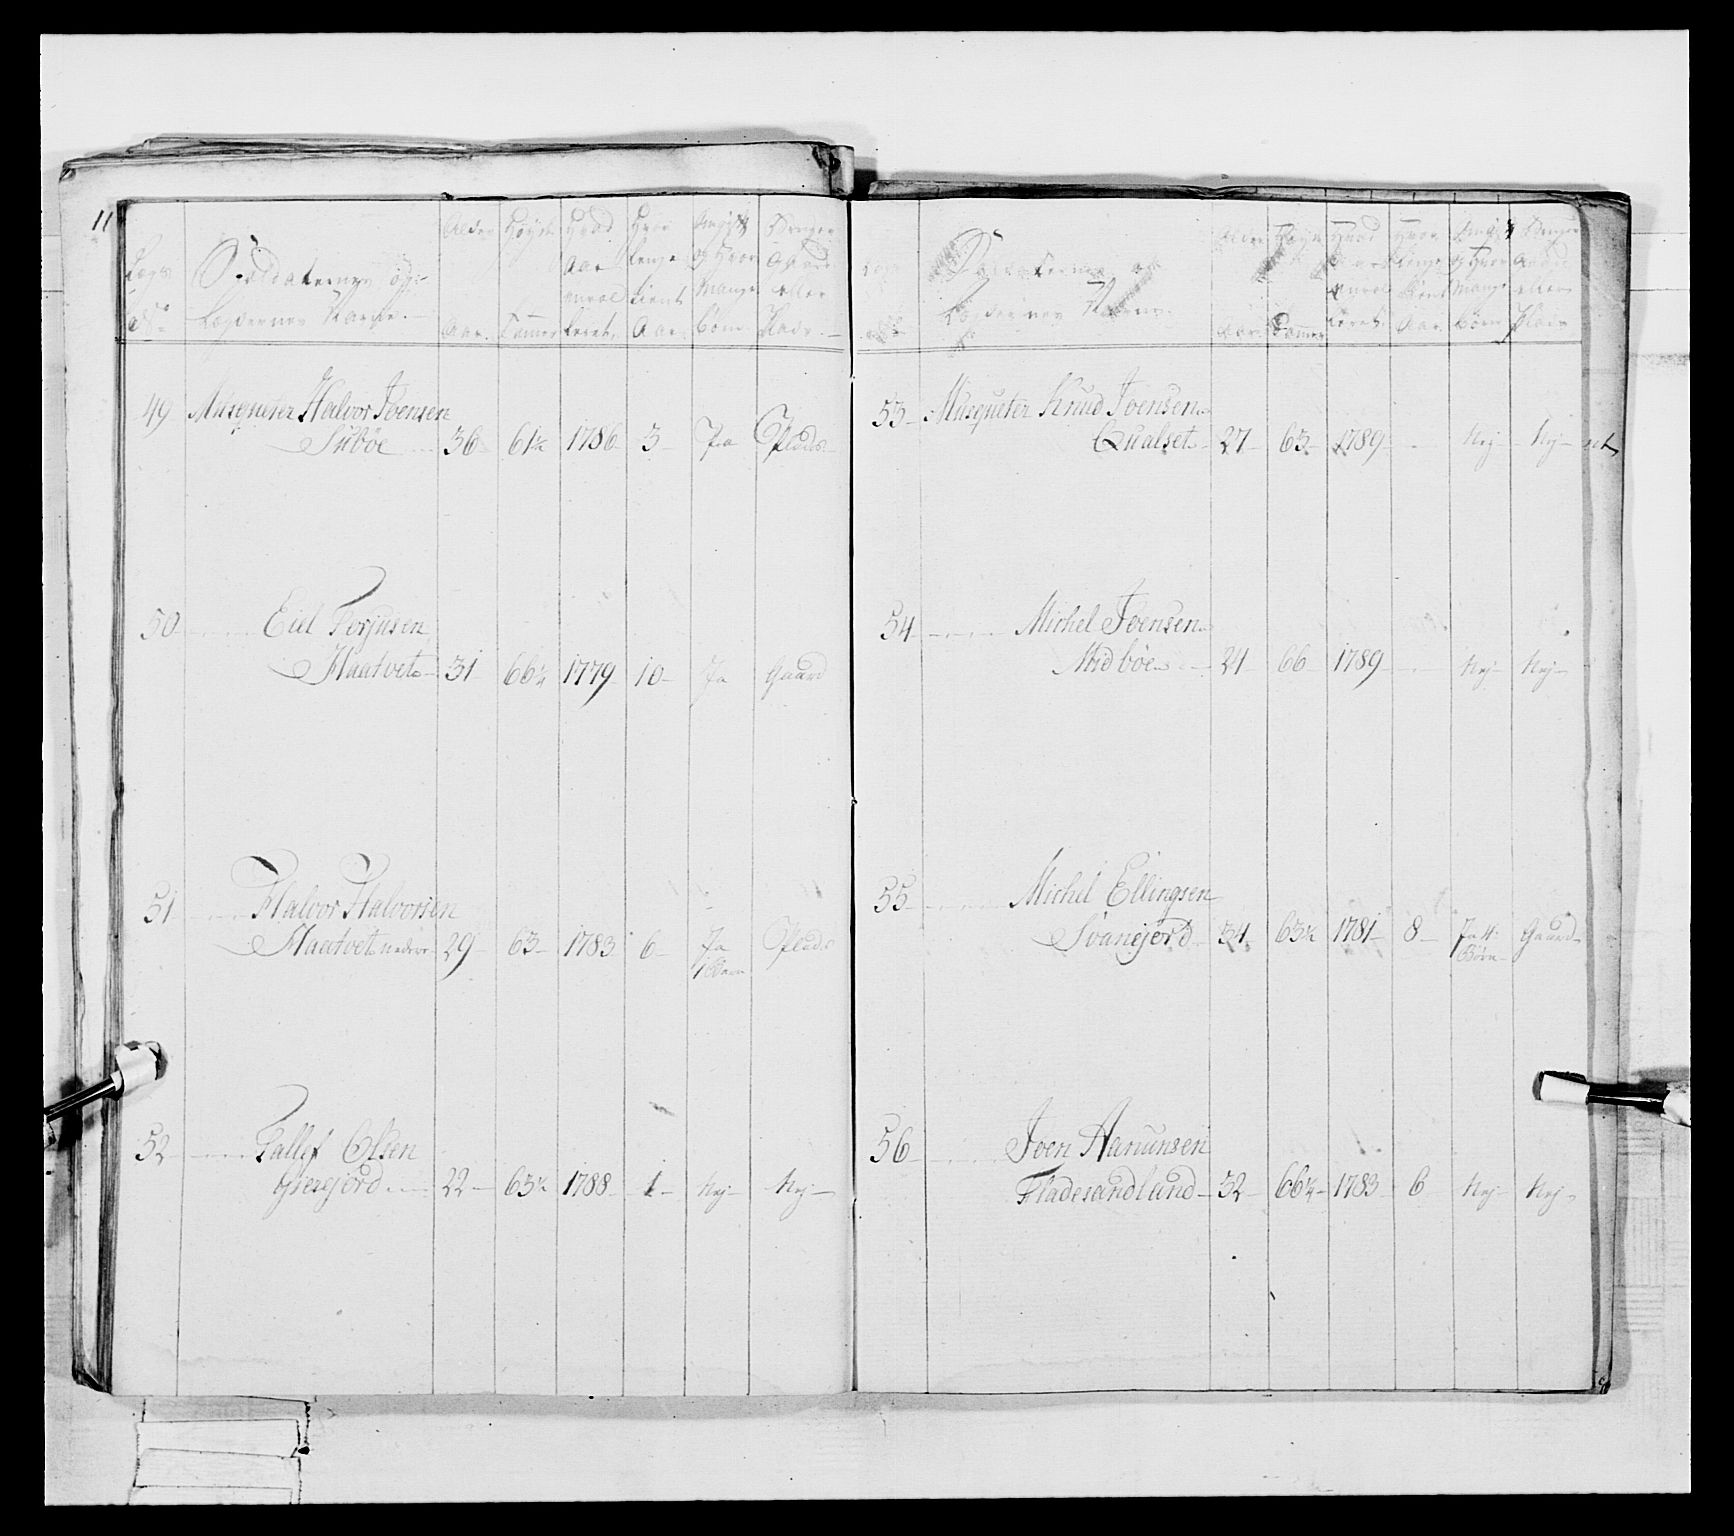 11
Alder Høyde Hvad Hvor Givt Bruger
Aar lenge og Hvor Gaard
Soldaternes og enrol tient Mange eller
Lægdernes Navne. Aar. Tomer leret. Aar. børn. Plads
49 Musqueter Halvor Joensen
Siibøe 36 61½ 1786 3 Ja Plads
50 Eiel Torjusen
Haatvet 31 66¼ 1779 10 Ja Gaard
51 Halvor Halvorsen
Haatvet nedre 29 63 1783 6 Ja Plads
1 Barn
52 Tallef Olsen
Gierejord 22 63½ 1788 1 Nej Nej
Alder Høyde Hvad Hvor Bruger
Aar lenge og Hvor Gaard
Soldaternes og enrol tient Mange eller
Lægdernes Navne. Aar. Tomer leret. Aar. børn Plads
53 Musqueter Knud Joensen
Qualset 27 63 1789 Nej Nej
54 Michel Joensen
Midbøe 24 66 1789 Nej Nej
55 Michel Ellingsen
Svanejord 34 63½ 1781 8 Ja 4 Gaard
Børn
56 Joen Aanunsen
Fladesandlund 32 66¼ 1783 6 Nej Nej